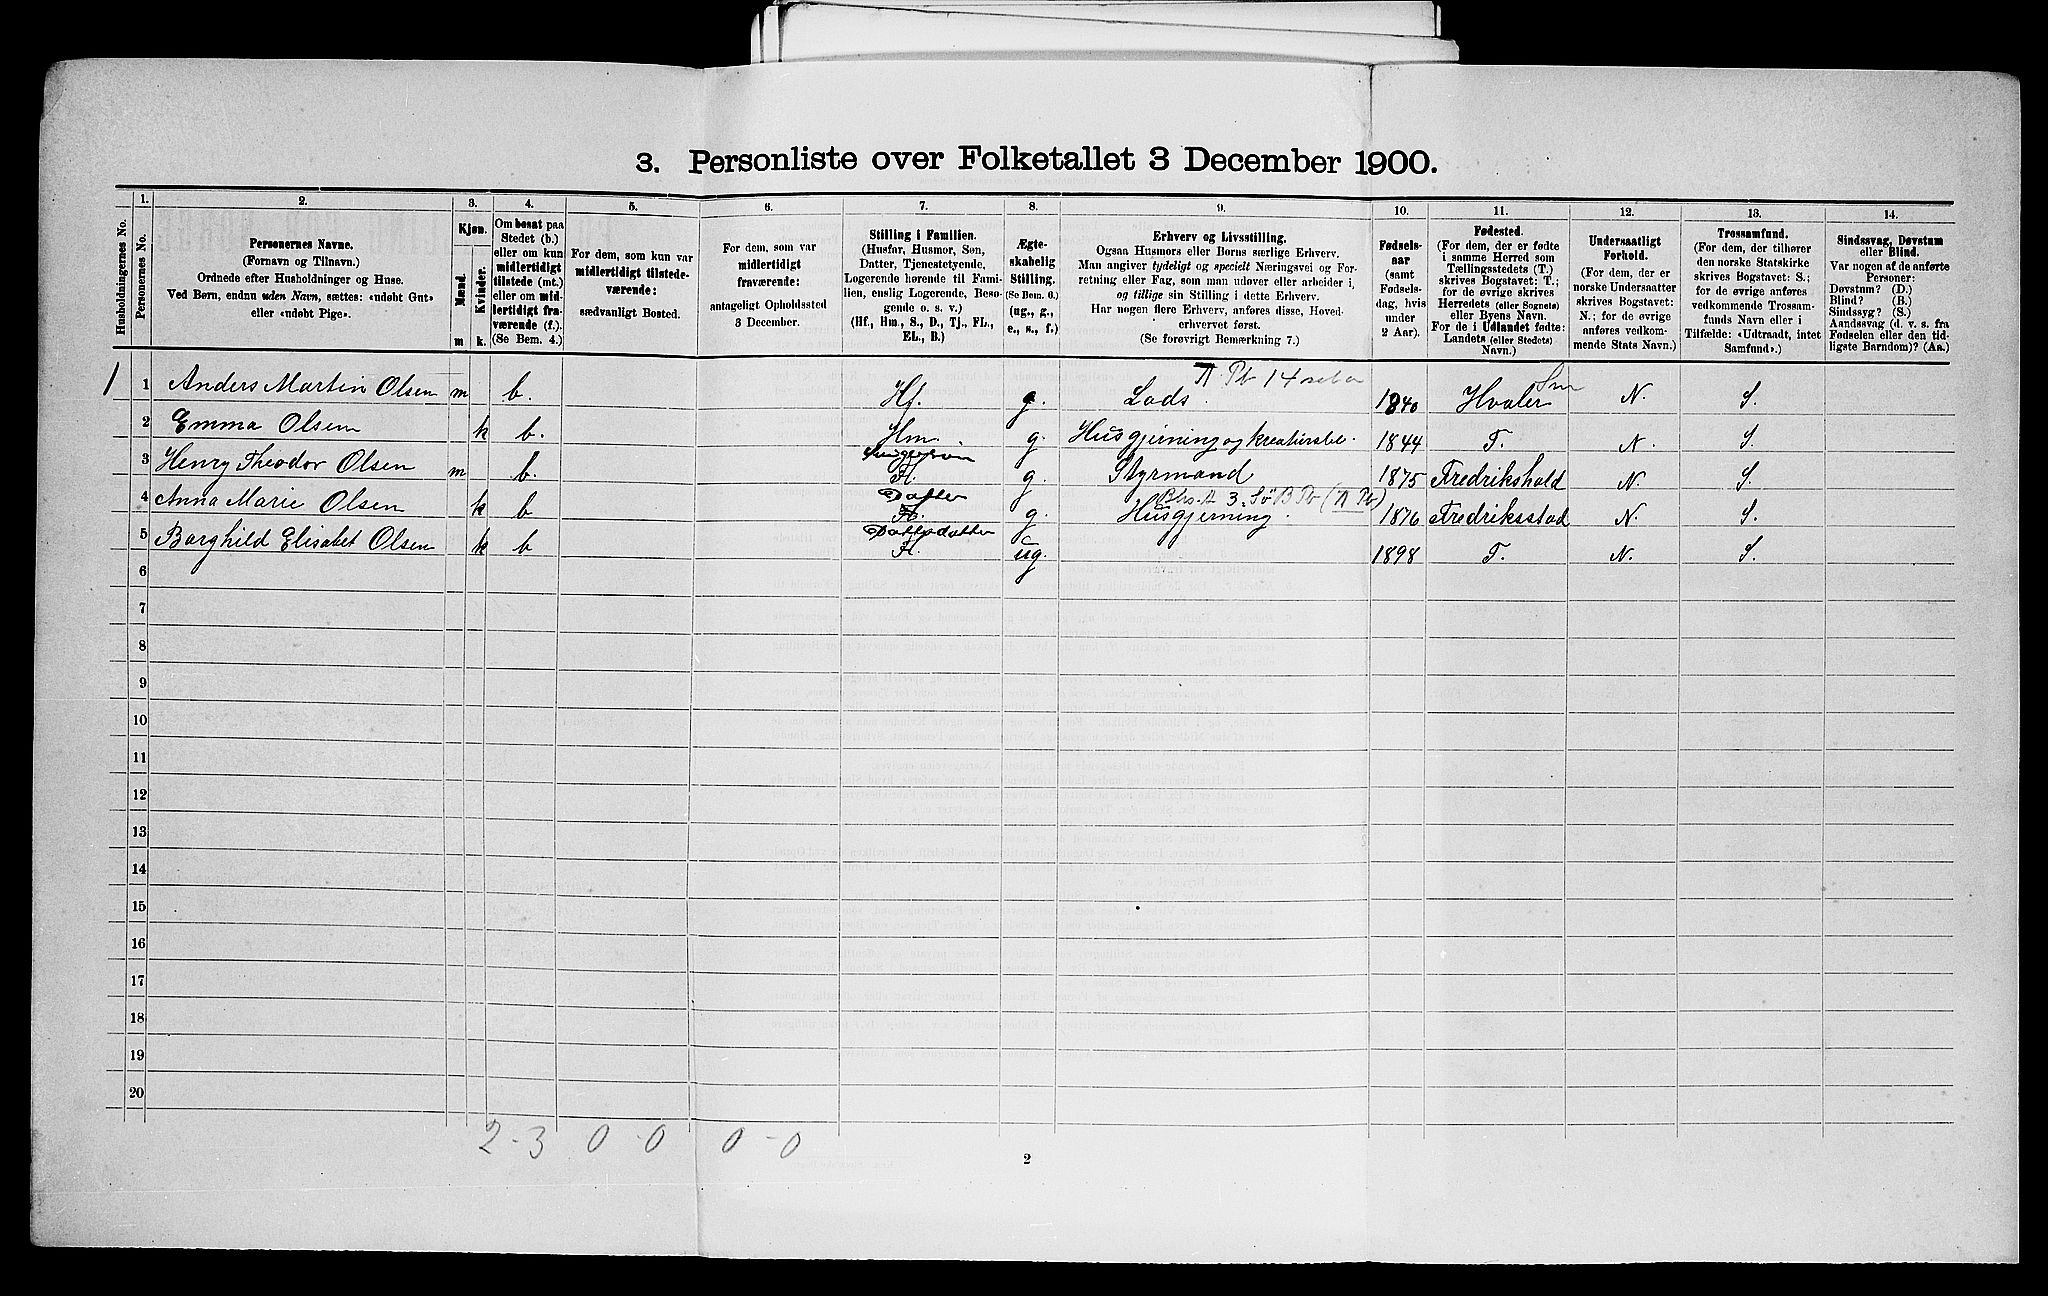 3. Personliste over Folketallet 3 December 1900.
Husholdningernes No.
1.
Personernes No.
2.
Personernes Navne.
(Fornavn og Tilnavn.)
Ordnede efter Husholdninger og Huse.
Ved Børn, endnu uden Navn, sættes: «udøbt Gut»
eller «udøbt Pige».
3.
Kjøn.
Mænd.
Kvinder.
m k.
4.
Om bosat paa
Stedet (b.)
eller om kun
midlertidigt
tilstede (mt.)
eller om mid-
lertidigt fra-
værende (f.).
(Se Bem. 4.)
5.
For dem, som kun var
midlertidigt tilstede-
værende:
sædvanligt Bosted.
6.
For dem, som var
midlertidigt
fraværende:
antageligt Opholdssted
3 December.
7.
Stilling i Familien.
(Husfar, Husmor, Søn,
Datter, Tjenestetyende,
Logerende hørende til Fami-
lien, enslig Logerende, Besø-
gende o. s. v.)
(Hf., Hm., S., D., Tj., FL.,
EL., B.)
8.
Ægte-
skabelig
Stilling.
(Se Bem. 6.)
(ug., g.,
e., s., f.)
9.
Erhverv og Livsstilling.
Ogsaa Husmors eller Børns særlige Erhverv.
Man angiver tydeligt og specielt Næringsvei og For-
retning eller Fag, som man udøver eller arbeider i,
og tillige sin Stilling i dette Erhverv.
Har nogen flere Erhverv, anføres disse, Hoved-
erhvervet først.
(Se forøvrigt Bemærkning 7.)
10.
Fødsels-
aar
(samt
Fødsels-
dag, hvis
under
2 Aar).
11.
Fødested.
(For dem, der er fødte
i samme Herred som
Tællingsstedets (T.)
skrives Bogstavet: T.;
for de øvrige skrives
Herredets (eller Sognets)
eller Byens Navn.
For de i Udlandet fødte:
Landets (eller Stedets)
Navn.)
12.
Undersaatligt
Forhold.
(For dem, der er
norske Undersaatter
skrives Bogstavet:
N.; for de øvrige
anføres vedkom-
mende Stats Navn.)
13.
Trossamfund.
(For dem, der tilhører
den norske Statskirke
skrives Bogstavet: S.;
for de øvrige anføres
vedkommende Trossam-
funds Navn eller i
Tilfælde: «Udtraadt, intet
Samfund».)
14.
Sindssvag, Døvstum
eller Blind.
Var nogen af de anførte
Personer:
Døvstum? (D.)
Blind? (B.)
Sindssyg? (S.)
Aandssvag (d. v. s. fra
Fødselen eller den tid-
ligste Barndom)? (Aa.)
1 1 Anders Martin Olsen m b. Hf. g. Lods. 1840 Hvaler N. S.
2 Emma Olsen k b. Hm. g. Husgjerning og kreaturstel. 1844 T. N. S.
3 Henry Theodor Olsen m b. g. Styrmand 1875 Fredrikshald N. S.
Datter
4 Anna Marie Olsen k b g. Husgjerning. 1876 Fredriksstad N. S.
Datterdatter
5 Borghild Elisabet Olsen k b ug. 1898 T. N. S.
6
7
8
9
10
11
12
13
14
15
16
17
18
19
20
2-3 0-0 0-0
2